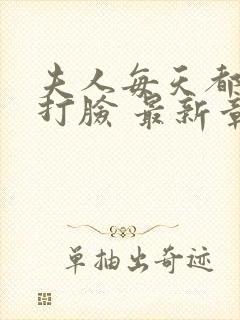 夫人每天都
打脸 最新章
单抽出奇迹